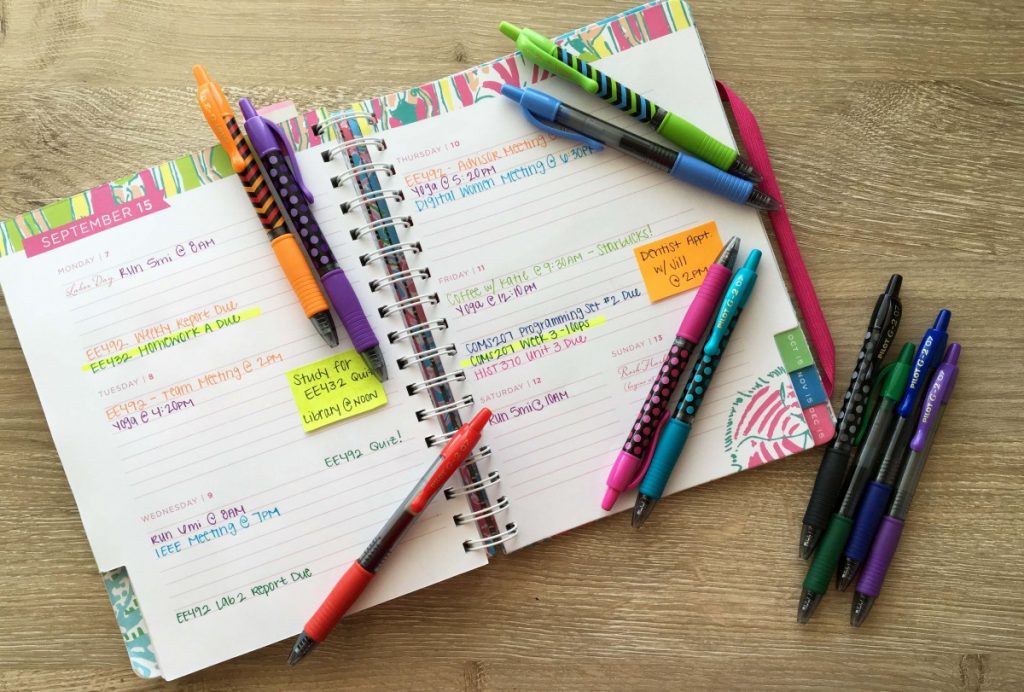 SEPTEMBER 15
MONDAY | 7
Labor Day
Run 5mi @ 8AM
EE492 Weekly Report Due
EE432 Homework A Due
TUESDAY | 8
EE492 - Team Meeting @ 2PM
Yoga @ 4:20PM
Study for
EE432 Quiz
Library @ Noon
EE492 Quiz!
WEDNESDAY | 9
Run 4mi @ 8AM
IEEE Meeting @ 7PM
EE492 Lab 2 Report Due
THURSDAY | 10
EE492 - Advisor Meeting @
Yoga @ 5:20PM
Digital Women Meeting @ 6:30PM
FRIDAY | 11
Coffee w/ Katie @ 9:30AM - Starbucks!
Yoga @ 12:10PM
Dentist Appt.
w/ Jill
@ 2PM
COMS207 Programming Set #2 Due
COMS207 Week 3 - loops
HIST370 Unit 3 Due
SATURDAY | 12
Run 5mi @ 10AM
SUNDAY | 13
OCT 15
NOV 15
DEC 15
PILOT G-2 07
PILOT G-2 07
PILOT G-2 07
PILOT G-2 07